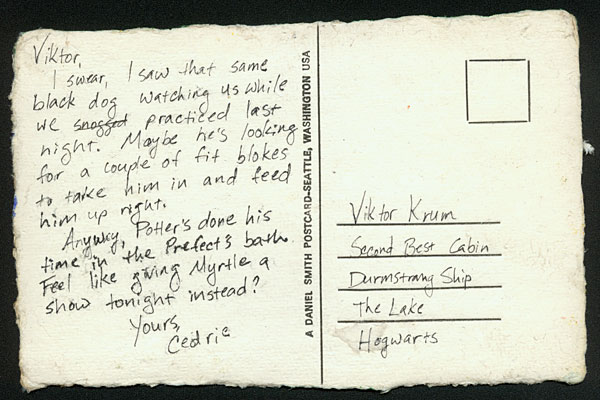 Viktor,
I swear, I saw that same
black dog watching us while
we snogged practiced last
night. Maybe he's looking
for a couple of fit blokes
to take him in and feed
him up right.
Anyway, Potter's done his
time in the Prefect's bath.
Feel like giving Myrtle a
show tonight instead?
Yours,
Cedric
A DANIEL SMITH POSTCARD-SEATTLE, WASHINGTON USA
Viktor Krum
Second Best Cabin
Durmstrang Ship
The Lake
Hogwarts